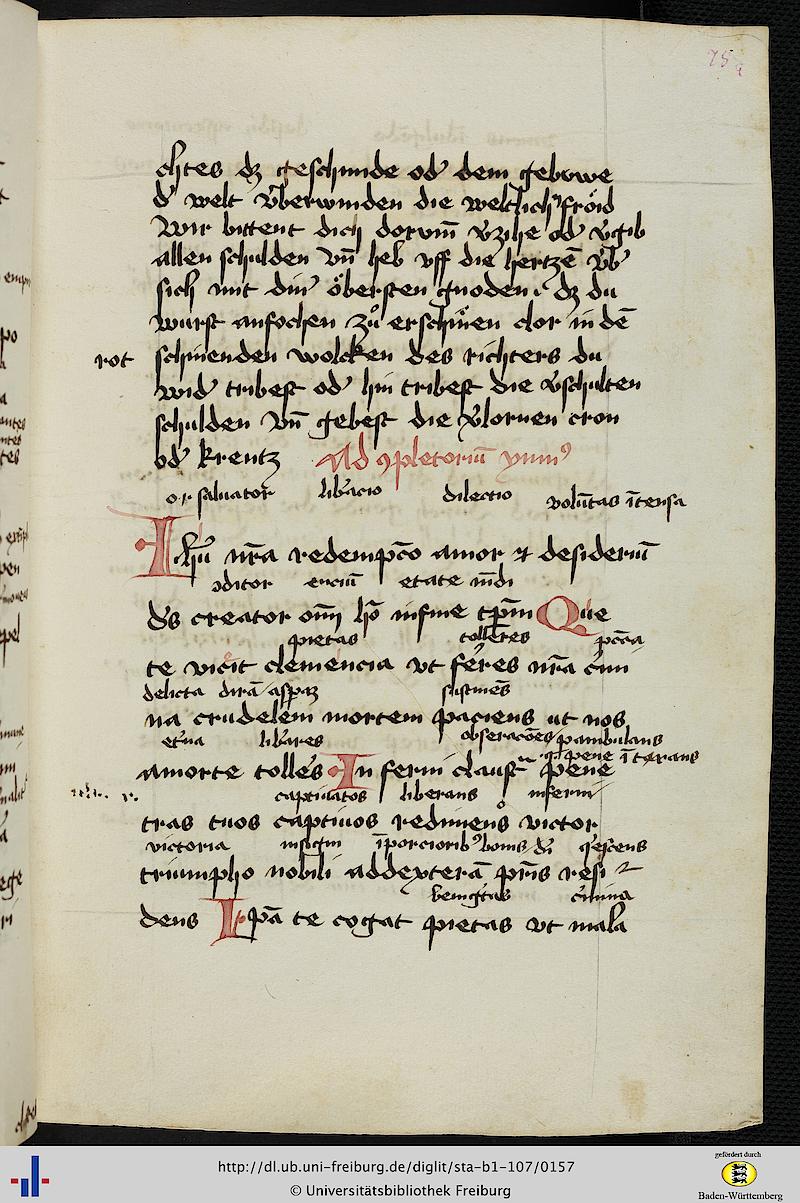 75
chtes dz geschinde od' dem gebuwe
d' welt v̈berwinden die weltlich' fröid
Wir bittent dich dorvm̄ v'zihe od' v'gib
allen schulden vn̄ heb vff die hertzē v̈b'
sich mit din' öbersten gnoden. dz du
wurst anfochen zů erschinen clor in dē
rot schinenden wolcken des richters du
wid' tribest od' hin tribest die v'schulten
schulden vn̄ gebest die v'lornen cron
od' krentz Ad ꝯpletoriū ymnꝰ
o saluator lib'acio dilectio volūtas ītensa
Ihū nr̄a redempc̄o amor ⁊ desideriū
ꝯditor etate mūdi
ds̄ creator om̄ hō in fine tp̄m Que
pietas tolleres pc̄cā
te vicit clemencia vt fer'es nr̄a c'mi
delicta dirā asp̄az sustinēs
na crudelem mortem paciens ut nos
et'na lib'ares obseracōes pambulans
amorte tolles In ferni claustra pene
captiuatos liberans inferni
tras tuos captiuos redimens victor
victoria insigni q'escens
triumpho nobili addexterā pr̄is resi
benigtas c'mina
dens Ipā te cogat pietas vt mala
http://dl.ub.uni-freiburg.de/diglit/sta-b1-107/0157
© Universitätsbibliothek Freiburg
gefördert durch
Baden-Württemberg